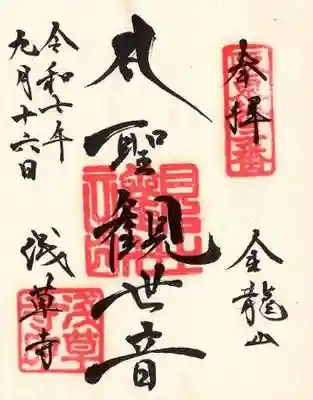 奉拝
金龍山
聖観世音
令和七年
九月十六日
浅草寺
浅草